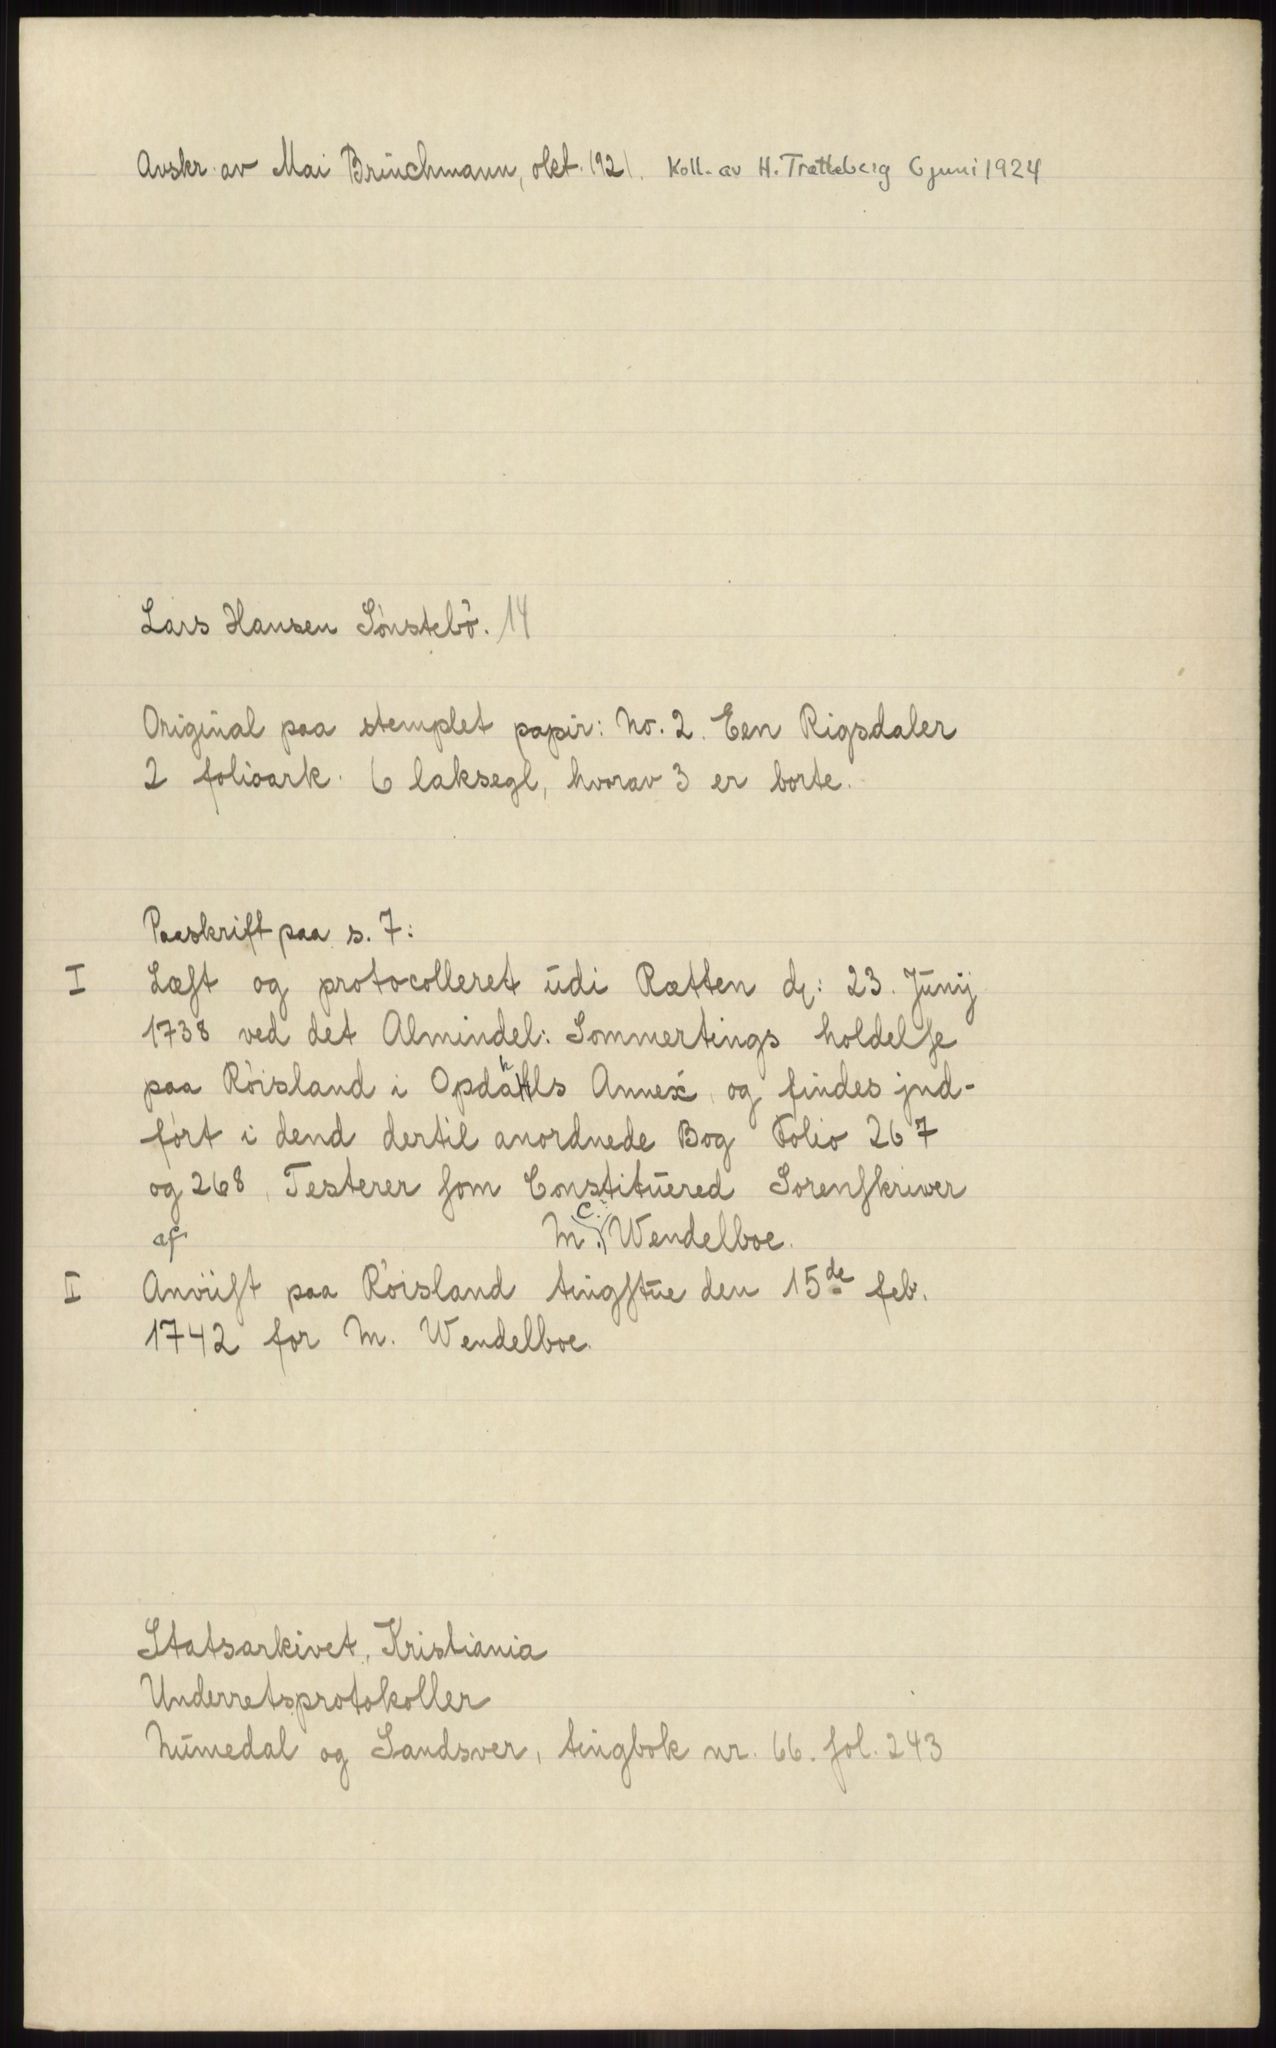 Avskr. av Mai Bruchmann, okt. 1921. Koll. av H. Trætteberg 6 juni 1924
Lars Hansen Sönstebö. 14
Original paa stemplet papir: No. 2. Een Rigsdaler
2 folioark. 6 laksegl, hvorav 3 er borte.
Paaskrift paa s. 7:
I Læſt og protocolleret udi Rætten d: 23. Junij
1738 ved det Almindel: Sommertings holdelſe
paa Röisland i Opdahls Annex og findes jnd-
fört i dend dertil anordnede Bog Folio 267
og 268, Testerer ſom Constituered Sorenſkriver
af M. C. Wendelboe.
I Anviiſt paa Röisland tingſtue den 15de feb.
1742 for M. Wendelboe.
Statsarkivet, Kristiania
Underretsprotokoller
Numedal og Sandsver, tingbok nr. 66. fol. 243